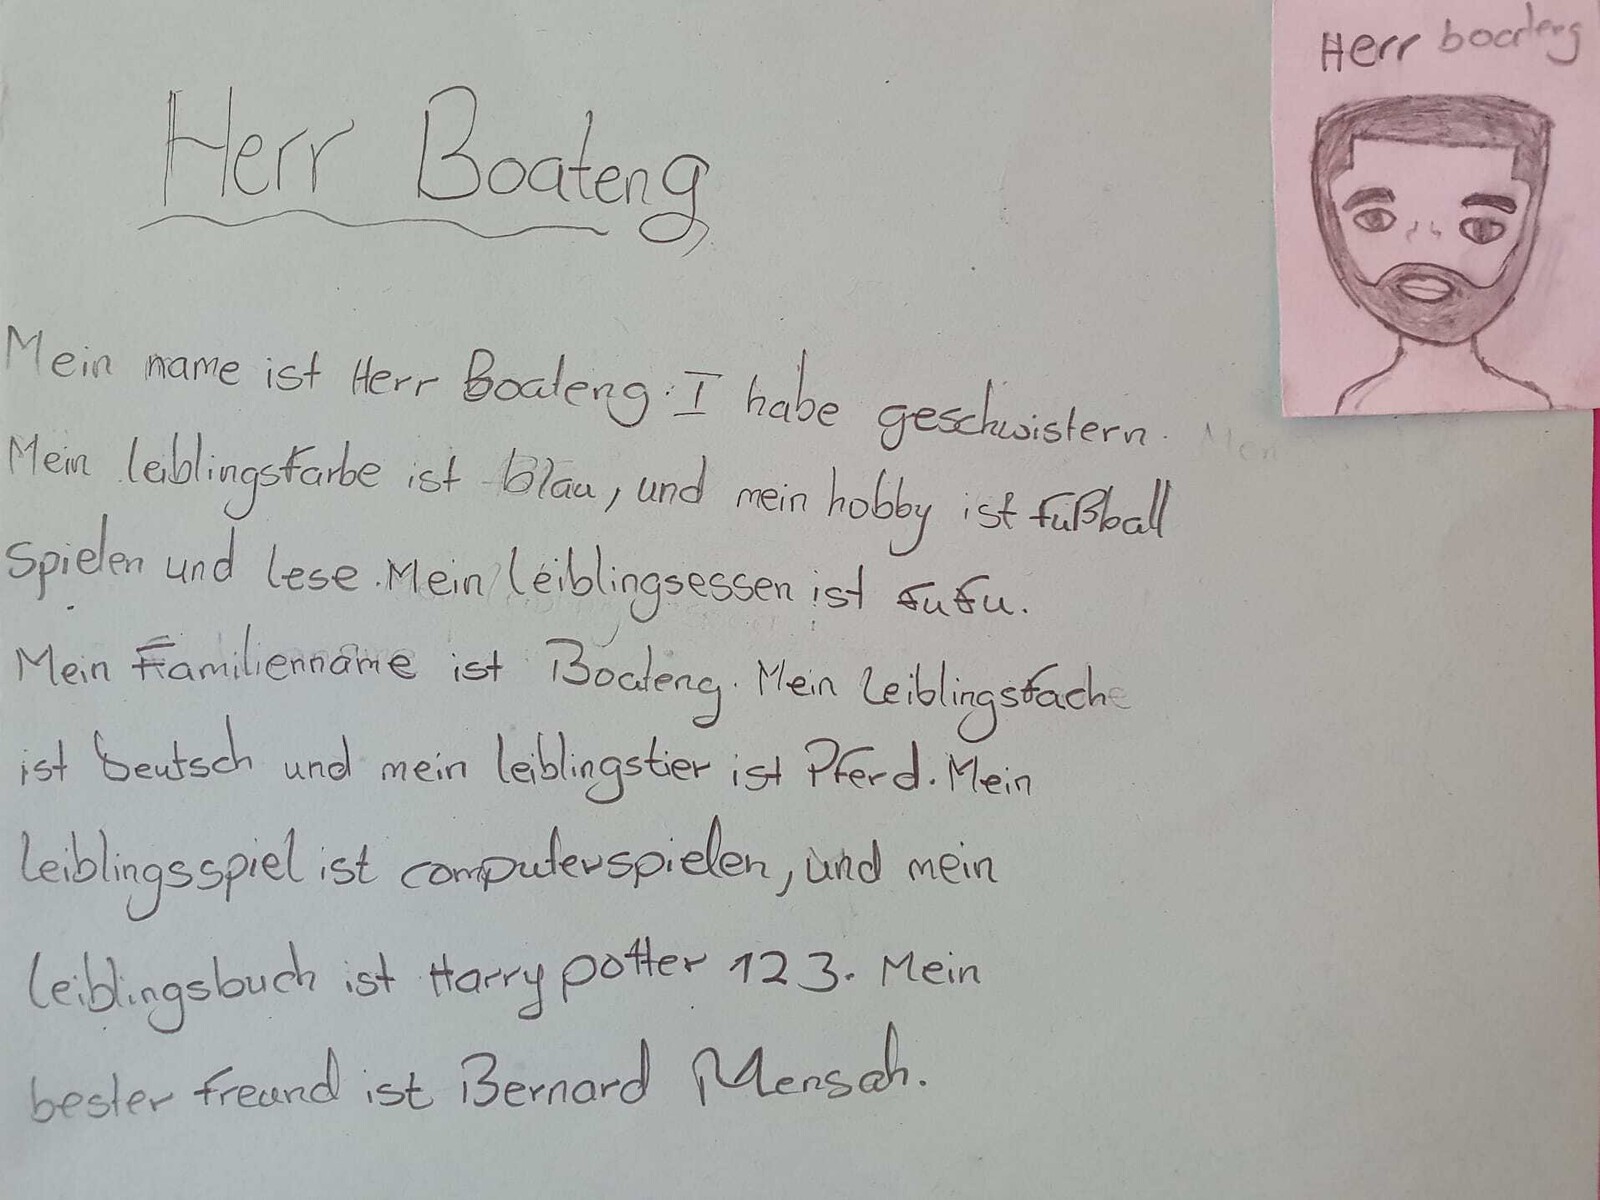 Herr boateng
Herr Boateng
Mein name ist Herr Boateng. I habe geschwistern.
Mein leiblingsfarbe ist blau, und mein hobby ist fußball
Spielen und lese. Mein leiblingsessen ist fufu.
Mein Familienname ist Boateng. Mein leiblingsfache
ist Deutsch und mein leiblingstier ist Pferd. Mein
leiblingsspiel ist computerspielen, und mein
leiblingsbuch ist Harry potter 123. Mein
bester freund ist Bernard Mensah.